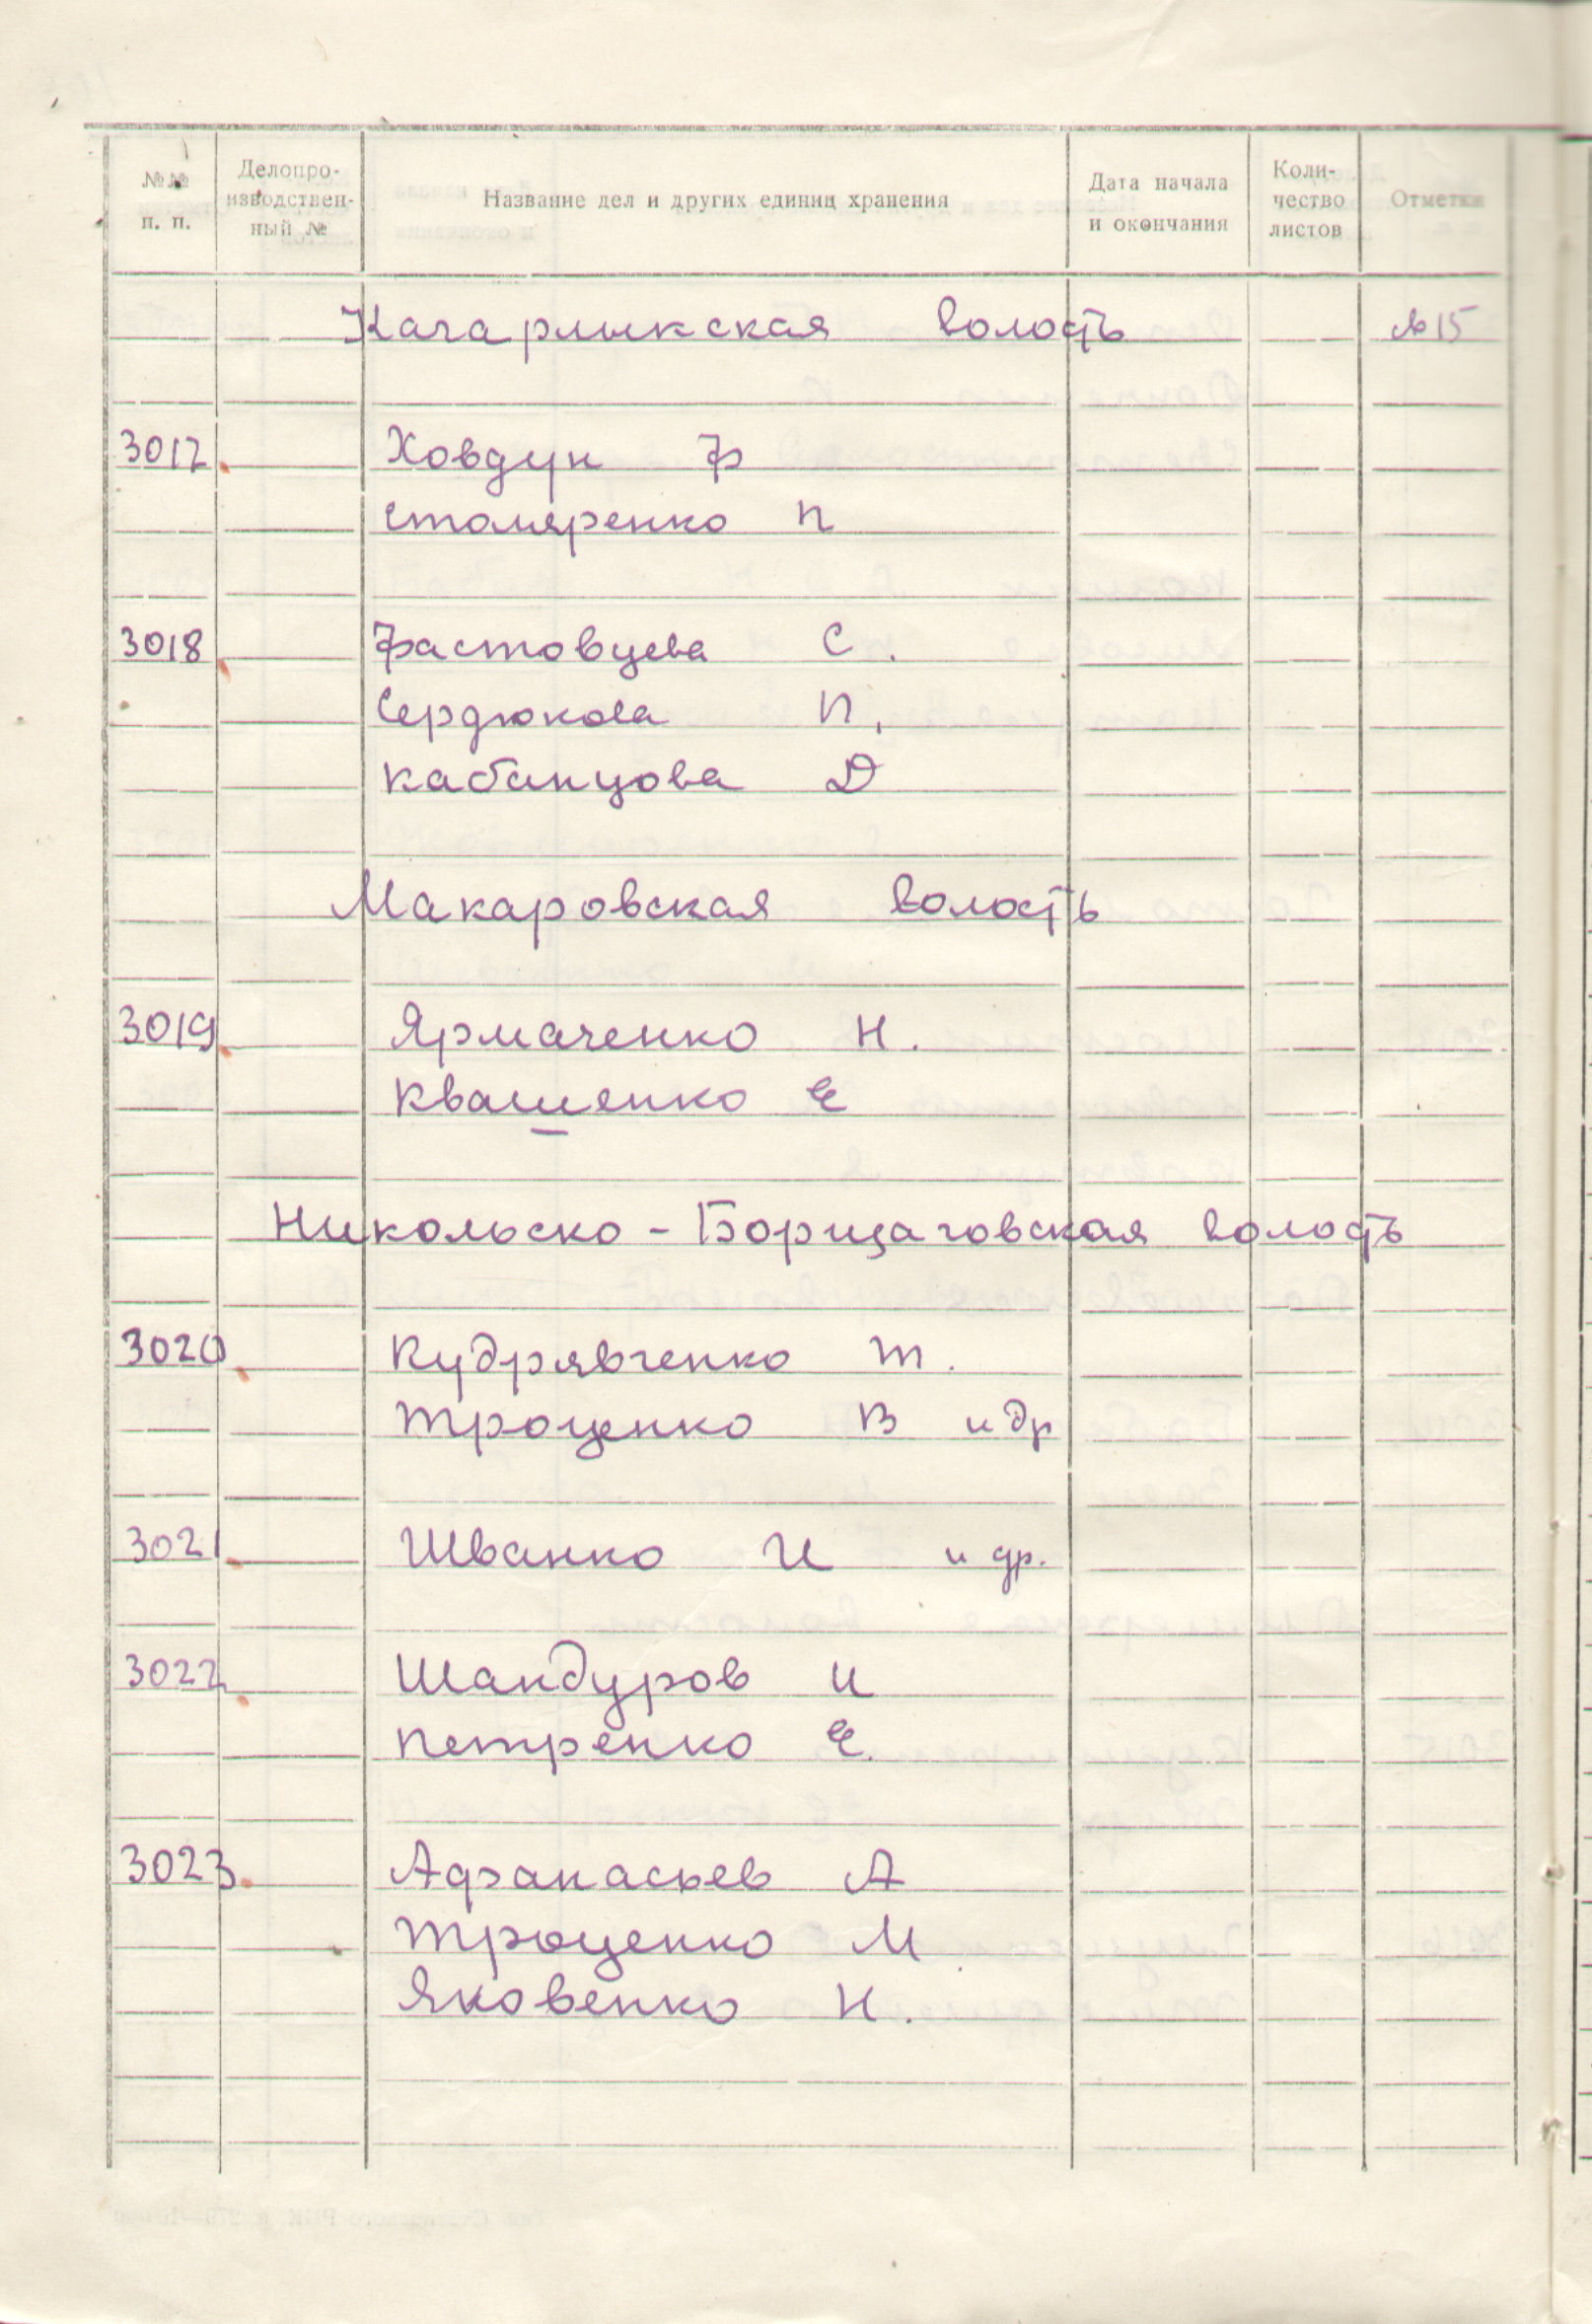 №№ п. п.
Делопро-
изводствен-
ный №
Название дел и других единиц хранения
Дата начала
и окончания
Коли-
чество
листов
Отметки
Кагарлыкская волость №15
3017 Ховдун Ф
Столяренко П
3018 Фастовцева С.
Сердюкова П.
Кабанцова Д
Макаровская волость
3019 Ярмаченко Н.
Квашенко Е
Никольско-Борщаговская волость
3020 Кудрявченко Т.
Троценко В и др
3021 Шванко И и др.
3022 Шандуров И
Петренко Е.
3023 Афанасьев А
Троценко М
Яковенко Н.